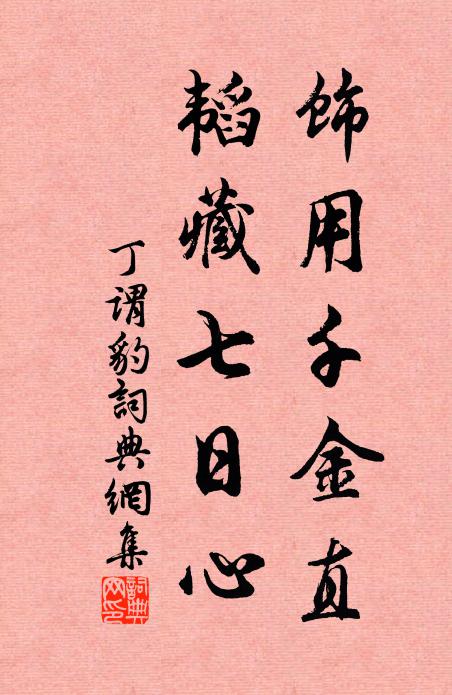 飾用千金直
韜藏七日心
丁謂豹詞典網集
詞典网印